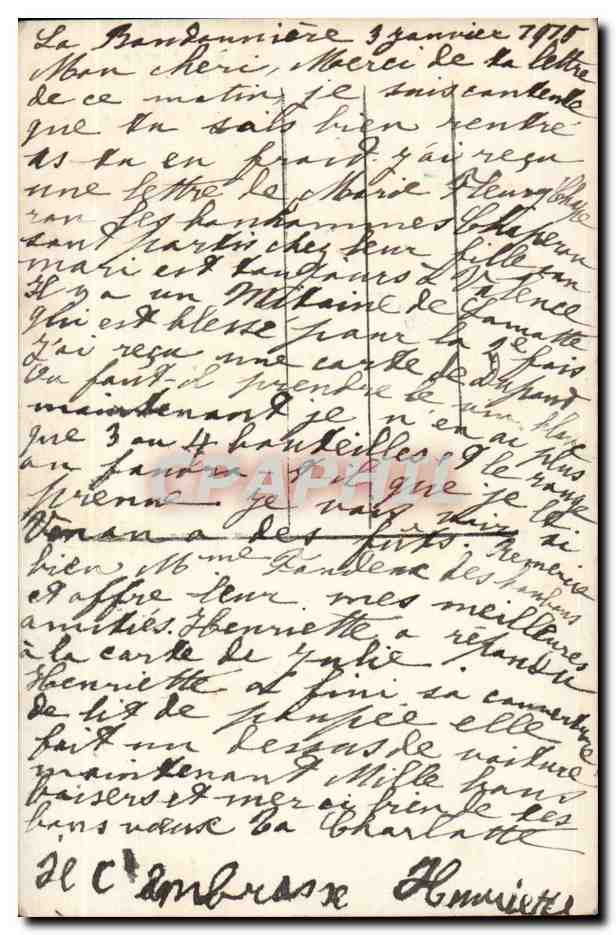 La Bandonnière 3 janvier 1915
Mon chéri, Merci de ta lettre
de ce matin, je suis contente
que tu sois bien rentré
as tu eu froid j'ai reçu
une lettre de Marie Fleury
les bonhommes Chaperon
sont partis chez leur fille son
mari est toujours à Valence
Il y a un Mitaine de Lamotte
qui est blessé pour la 2e fois
j'ai reçu une carte de Dupont
Ou faut-il prendre le vin blanc
maintenant je n'en ai plus
que 3 ou 4 bouteilles et le rouge
ou faudra-t-il que je le
prenne je vais voir si
Venon a des fûts. Remercie
bien Mme des bonbons
et offre leur mes meilleures
amitiés. Henriette a répondu
à la carte de Julie.
Henriette a fini sa couverture
de lit de poupée elle
fait un dessus de voiture
maintenant Mille bons
baisers et merci bien de tes
bons vœux ta Charlotte
Je t'ambrasse Henriette
CPAPHIL